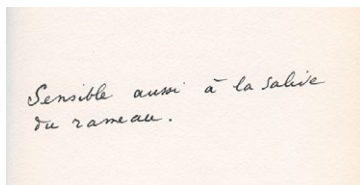 Sensible aussi à la salive
du rameau.